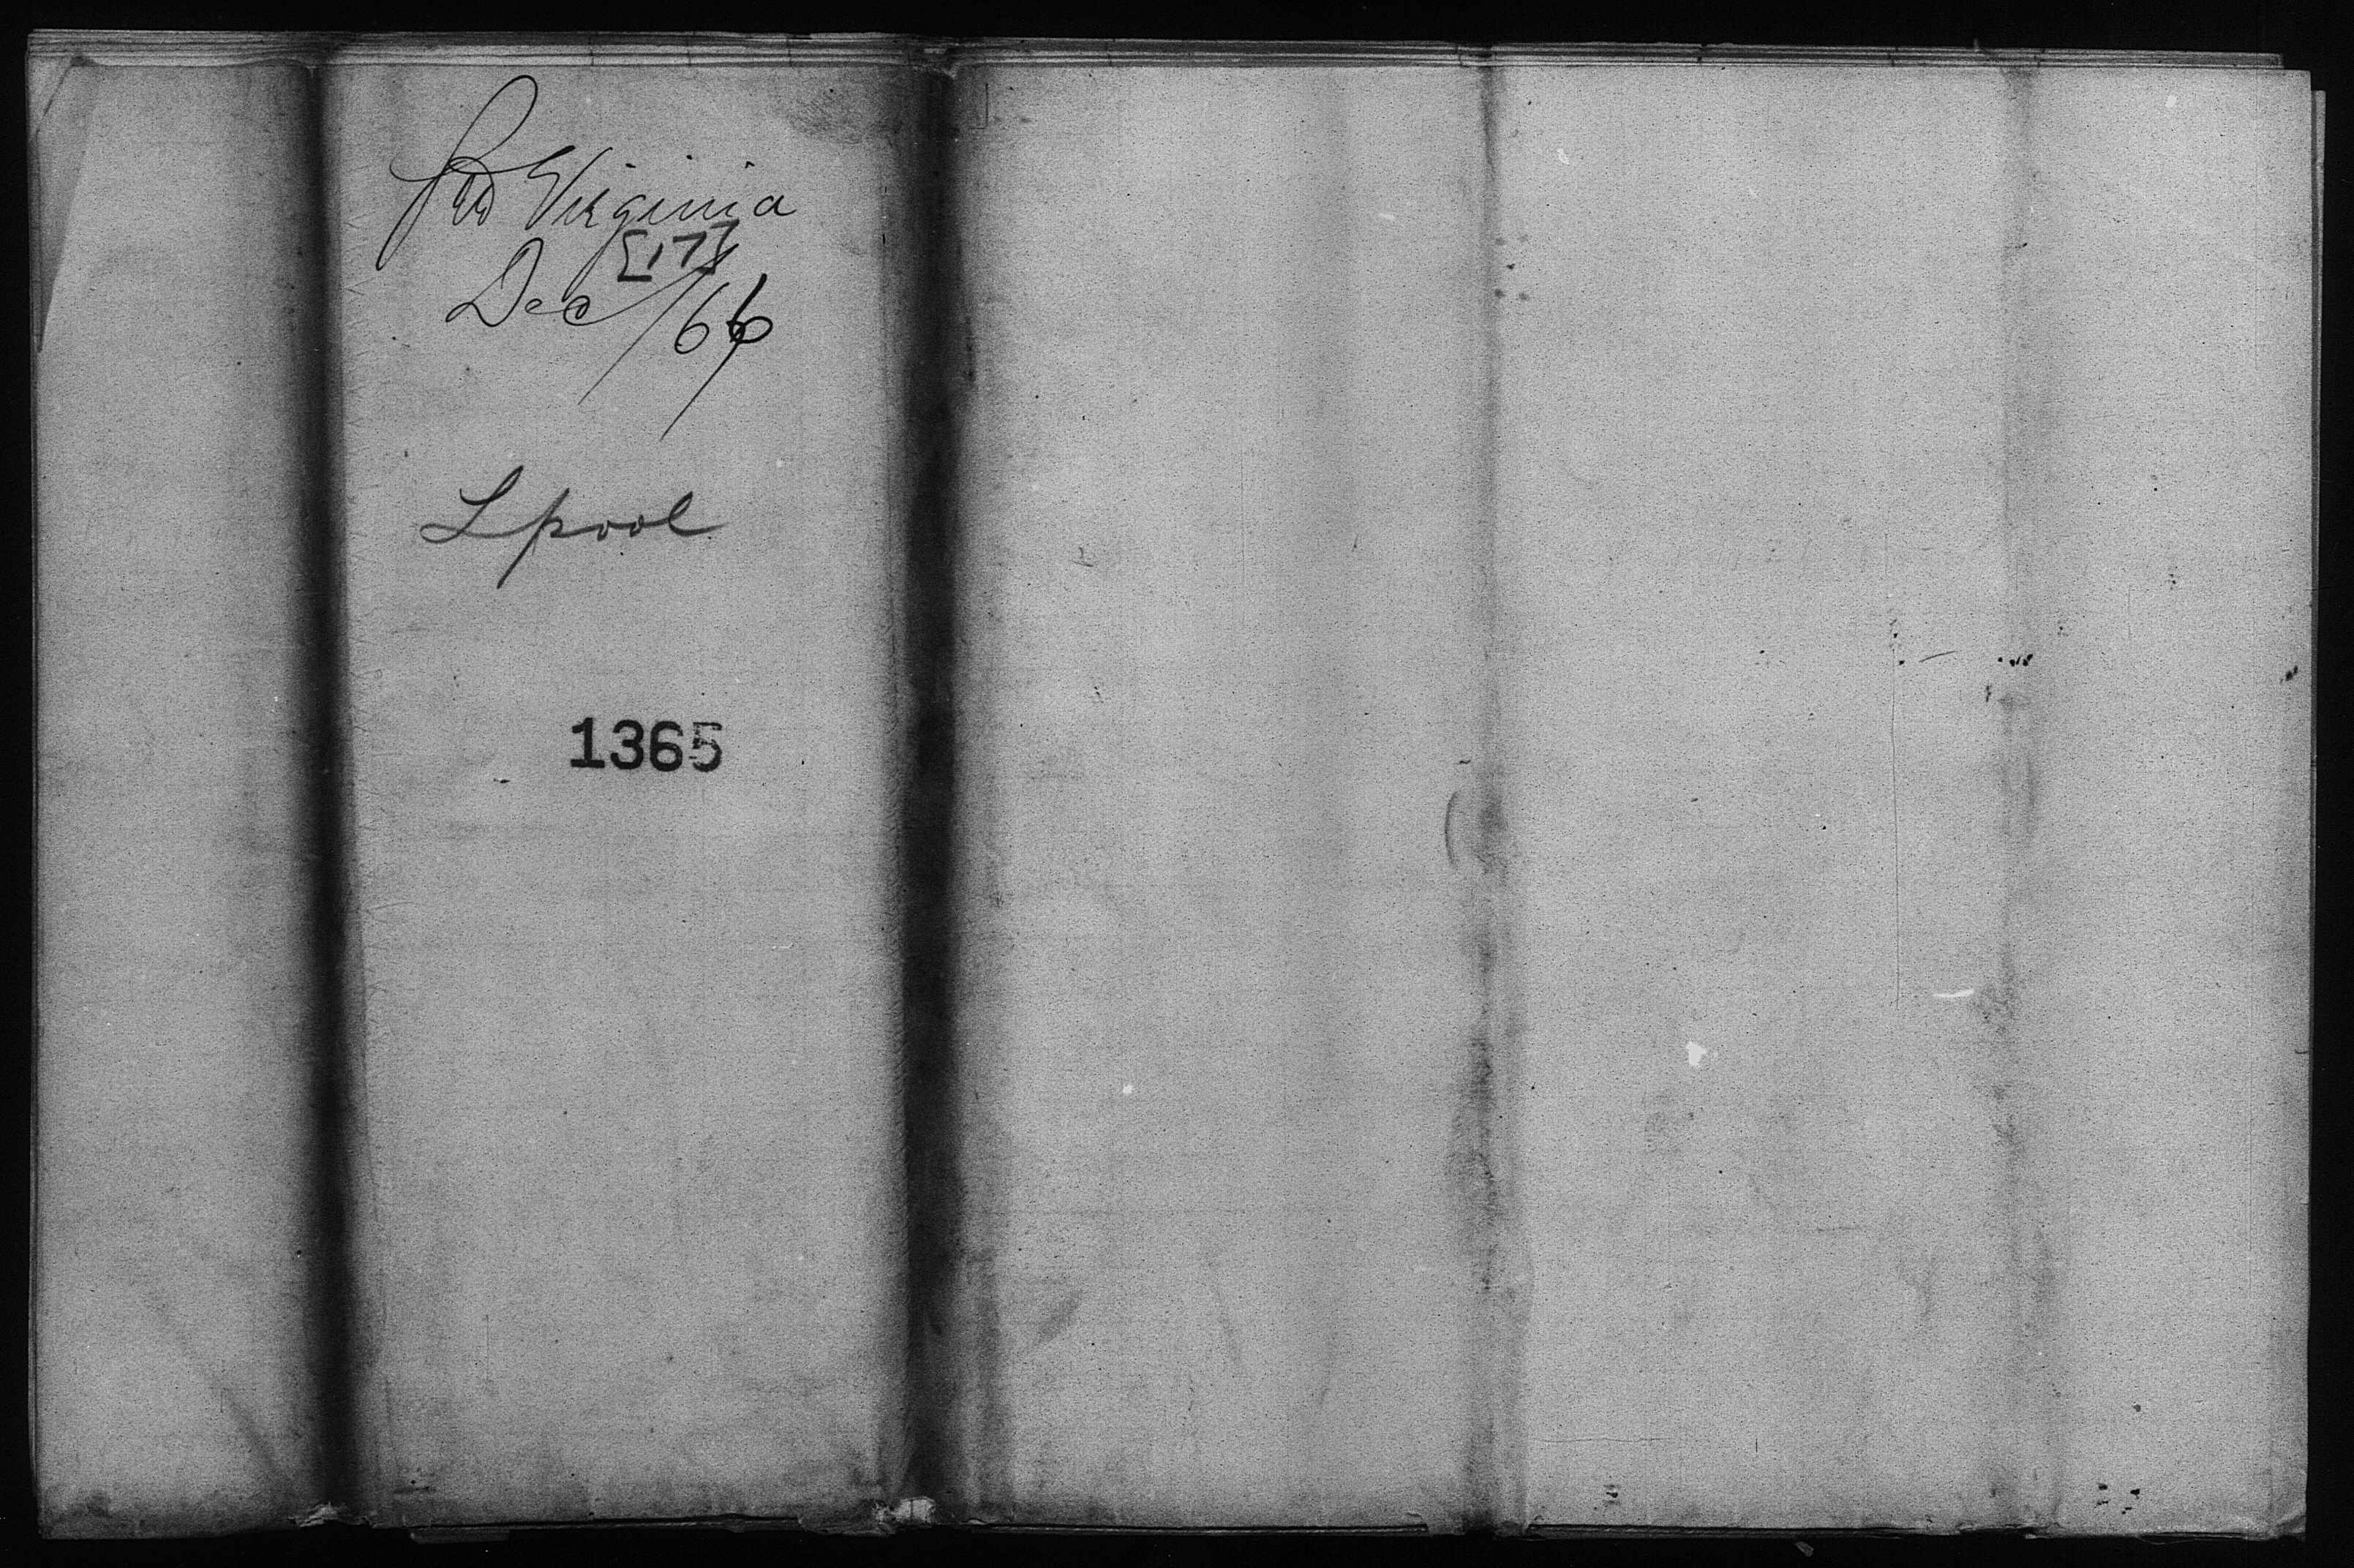 SS Virginia
[17]
Dec /66
Lpool
1365